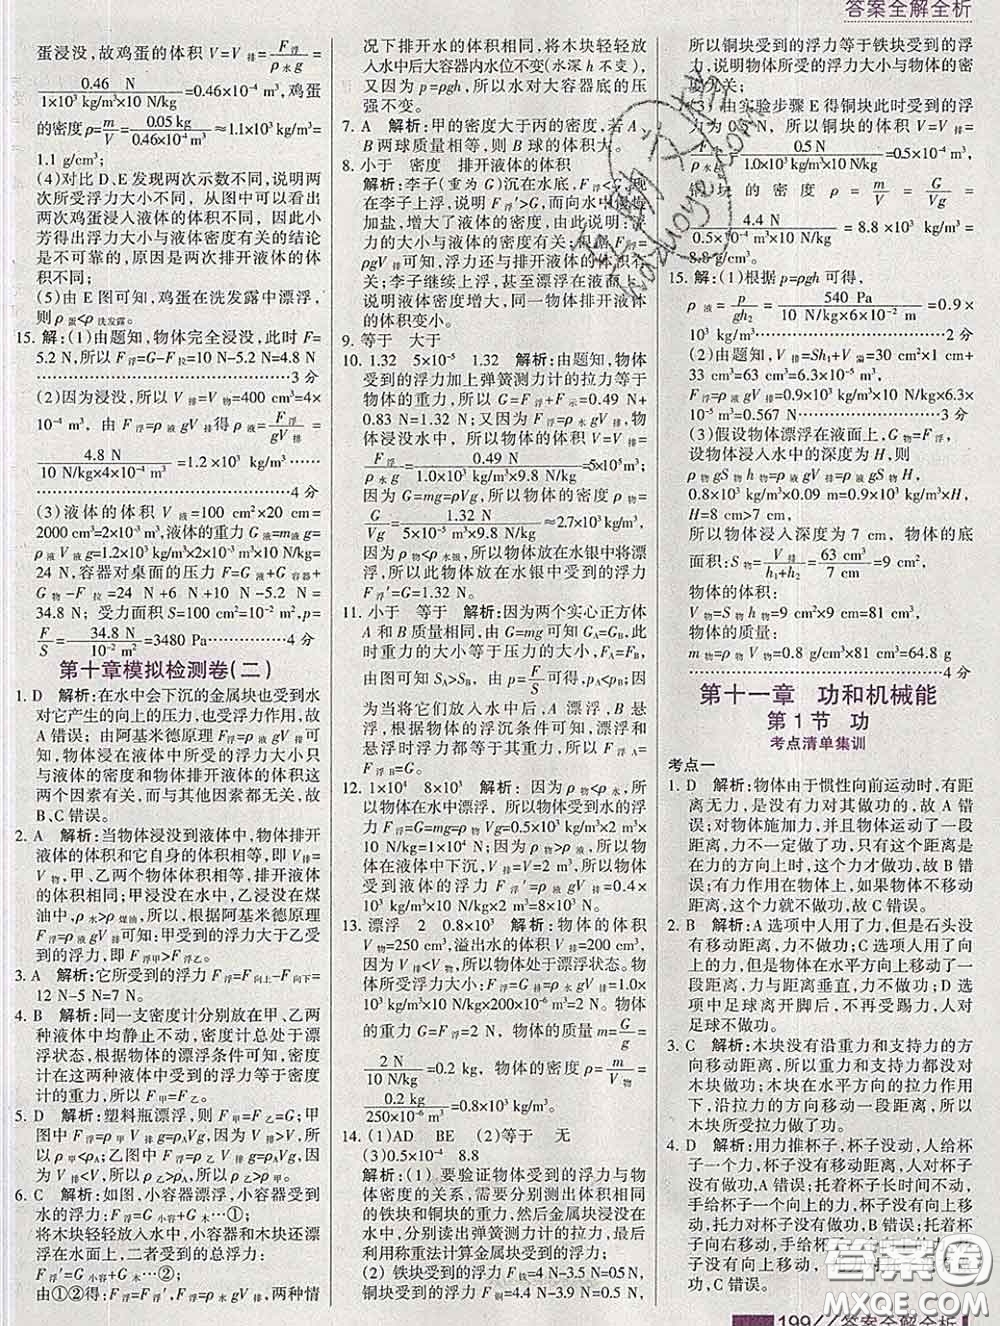 答案全解全析
蛋浸没,故鸡蛋的体积 V=V排=F浮/ρ水g=
0.46 N/(1×10³ kg/m³×10 N/kg)=0.46×10⁻⁴ m³,鸡蛋
的密度ρ=m/V=0.05 kg/(0.46×10⁻⁴ m³)≈1.1×10³ kg/m³=
1.1 g/cm³;
(4)对比 D、E 发现两次示数不同,说明两
次所受浮力大小不同,从图中可以看出
两次鸡蛋浸入液体的体积不同,因此小
芳得出浮力大小与液体密度有关的结论
是不可靠的,原因是两次排开液体的体
积不同;
(5)由 E 图可知,鸡蛋在洗发露中漂浮,
则ρ蛋<ρ洗发露。
15. 解:(1)由题知,物体完全浸没,此时 F=
5.2 N,所以 F浮=G-F拉=10 N-5.2 N=4.8 N
3 分
(2)因为浸没,所以 V排=V物=400 cm³=4×
10⁻⁴ m³,由 F浮=ρ液gV排得ρ液=F浮/gV排=
4.8 N/(10 N/kg×4×10⁻⁴ m³)=1.2×10³ kg/m³
4 分
(3)液体的体积 V液=100 cm²×20 cm=
2000 cm³=2×10⁻³ m³,液体的重力 G液=m液g=
ρ液V液g=1.2×10³ kg/m³×2×10⁻³ m³×10 N/kg=
24 N,容器对桌面的压力 F=G液+G容器+
G物-F拉=24 N+6 N+10 N-5.2 N=
34.8 N; 受力面积 S=100 cm²=10⁻² m²,p=
F/S=34.8 N/10⁻² m²=3480 Pa 4 分
第十章模拟检测卷(二)
1. D 解析:在水中会下沉的金属块也受到水
对它产生的向上的压力,也受浮力作用,故
A 错误;由阿基米德原理
F浮=ρ液gV排可知,
物体在液体中所受的浮力大小只
与液体的密度和物体排开液体的体积这
两个因素有关,而与其他因素都无关,故
B、C 错误。
2. A 解析:当物体浸没到液体中,物体排开
液体的体积和它自身的体积相等,即 V排=
V物,甲、乙两个物体体积相等,所以排开液
体的体积相同;甲浸没在水中,乙浸没在煤
油中,ρ水>ρ煤油,所以,根据阿基米德原理
F浮=ρ液gV排可知:甲受到的浮力大于乙受
到的浮力,即 F浮甲>F浮乙。
3. A 解析:它所受到的浮力 F浮=F向上-F向下=
12 N-5 N=7 N。
4. B 解析:同一支密度计分别放在甲、乙两
种液体中均静止不动,密度计总处于漂
浮状态,根据物体的漂浮条件可知,密度
计在这两种液体中受到的浮力等于密度
计的重力,所以 F甲=F乙。
5. D 解析:塑料瓶漂浮,则 F甲=F乙=G;甲
图中 F浮=ρ甲V排g=ρAVg,因为 V排<V,所
以ρ甲>ρA;乙图中 F浮=ρ乙V排g=ρAVg,所
以ρ乙>ρA。
6. C 解析:如图,小容器漂浮,小容器受到
的浮力:F浮=G小容+G木…①;
将木块轻轻放入水中,小容器和木块还漂
浮在水面上,二者受到的总浮力:
F浮′=G小容+G木…②
由①②得:F浮=F浮′,即两种情
况下排开水的体积相同,将木块轻轻放
入水中后大容器内水位不变(水深 h 不变),
又因为 p=ρgh,所以水对大容器底的压
强不变。
7. A 解析:甲的密度大于丙的密度,若 A、
B 两球质量相等,则 B 球的体积大。
8. 小于 密度 排开液体的体积
解析:李子(重为 G)沉在水底,F浮<G,现
在李子上浮,说明 F浮′>G,而向水中慢慢
加盐,增大了液体的密度,由此说明:浮
力的大小与液体的密度有关;由 F浮=
ρgV排可知,浮力还与排开液体的体积有
关;李子继续上浮,甚至漂浮在液面上,
说明液体密度增大,同一物体排开液体
的体积变小。
9. 等于 大于
10. 1.32 5×10⁻⁵ 1.32 解析:由题知,物体
受到的浮力加上弹簧测力计的拉力等于
物体的重力,所以 G=F浮+F示=0.49 N+
0.83 N=1.32 N;又因为 F浮=ρ水gV排,物
体浸没水中,所以物体的体积 V=V排=
F浮/ρ水g=0.49 N/(1.0×10³ kg/m³×9.8 N/kg)=5×10⁻⁵ m³
因为 G=mg=ρVg,所以物体的密度ρ物=
G/Vg=1.32 N/(5×10⁻⁵ m³×9.8 N/kg)≈2.7×10³ kg/m³
因为ρ物<ρ水银,所以物体放在水银中将漂浮,
所以此物体放在水银中受到的浮力
F浮′=G=1.32 N。
11. 小于 等于 解析:因为两个实心正方体
A 和 B 质量相同,由 G=mg 可知 GA=GB,
此时重力的大小等于压力大小,FA=FB,由
图可知 SA>SB,由 p=F/S可得,pA<pB;因
为当将它们放入水中后,A 漂浮,B 悬
浮,根据物体的浮沉条件可知,漂浮和悬
浮时浮力都等于其重力,所以 F浮A=
F浮B。
12. 1×10⁴ 8×10³ 解析:因为ρ物<ρ水,
所以物体在水中漂浮,所以受到的浮力
F浮=G=mg=ρ物Vg=0.5×10³ kg/m³×2 m³×
10 N/kg=1×10⁴ N;因为ρ物>ρ液,所以物
体在液体中下沉,V排=V=2 m³,所以物体
受到液体的浮力 F浮′=ρ液gV排=0.4×
10³ kg/m³×10 N/kg×2 m³=8×10³ N。
13. 漂浮 2 0.8×10³ 解析:物体的体积
V物=250 cm³,溢出水的体积 V排=200 cm³,
因为 V排<V物,所以物体处于漂浮状态。物体
所受浮力大小 F浮=ρ水gV排=1.0×
10³ kg/m³×10 N/kg×200×10⁻⁶ m³=2 N。物体
的重力 G=F浮=2 N,物体的质量 m=G/g=
2 N/(10 N/kg)=0.2 kg,物体的密度ρ=m/V物=
0.2 kg/(250×10⁻⁶ m³)=0.8×10³ kg/m³。
14. (1)AD BE (2)等于 无
(3)0.5×10⁻⁴ 8.8
解析:(1)要验证物体受到的浮力与物
体密度的关系,需要分别测出体积相同
的铁块和铜块的重力,然后金属块浸没在水
中,分别读出弹簧测力计的示数,最后
利用称重法计算金属块受到的浮力;
(2)铁块受到的浮力 F浮铁=4 N-3.5 N=0.5 N,
铜块受到的浮力 F浮铜=4.4 N-3.9 N=0.5 N,
所以铜块受到的浮力等于铁块受到的浮
力,说明物体所受的浮力大小与物体的密
度无关;
(3)由实验步骤 E 得铜块此时受到的浮
力为 0.5 N,所以铜块的体积 V=V排=
F浮/ρ水g=0.5 N/(1.0×10³ kg/m³×10 N/kg)=0.5×10⁻⁴ m³,
铜块的密度ρ=m/V=G/Vg=
4.4 N/(0.5×10⁻⁴ m³×10 N/kg)=8.8×10³ kg/m³=
8.8 g/cm³。
15. 解:(1)根据 p=ρgh 可得,
ρ液=p/gh₂=540 Pa/(10 N/kg×6×10⁻² m)=0.9×
10³ kg/m³ 2 分
(2)由题知,V排=Sh₁+V溢=30 cm²×1 cm+
33 cm³=63 cm³=6.3×10⁻⁵ m³,
F浮=ρ液gV排=0.9×10³ kg/m³×10 N/kg×6.3×
10⁻⁵ m³=0.567 N 3 分
(3)假设物体漂浮在液面上,G物=F浮,
设物体浸入水中的深度为 H,则
ρ物gS物h物=ρ液gV排=ρ液gS物H,
0.8×10³ kg/m³×0.09 m=0.9×10³ kg/m³×H,
H=8 cm>7 cm,
所以物体浸入深度为 7 cm,所以物体的
底面积:S物=V排/(h₁+h₂)=63 cm³/7 cm=9 cm²
物体的体积:
V物=S物h物=9 cm²×9 cm=81 cm³,
物体的质量:
m物=ρ物V物=0.8 g/cm³×81 cm³=64.8 g
4 分
第十一章 功和机械能
第 1 节 功
考点清单集训
考点一
1. D 解析:物体由于惯性向前运动时,有距
离无力,是没有力对其做功的,故 A 错
误;对物体施加力,并且物体运动了一段
距离,力不一定做了功,只有这个距离是
在力的方向上时,这个力才做功,故 B 错
误;有力作用在物体上,如果物体不移动
距离,这个力就不做功,故 C 错误。
2. B 解析:A 选项中人用了力,但是石头没
有移动距离,力不做功;C 选项人用了向
上的力,物体在水平方向上移动了距离,
力的方向与距离垂直,力不做功;D 选
项中足球离开脚后,不再受踢力,人对
足球不做功。
3. C 解析:木块没有沿重力和支持力的方
向移动距离,所以重力和支持力都没对
木块做功;木块在水平方向的拉力作用
下,沿拉力的方向移动了一段距离,所以
木块所受拉力做了功。
4. D 解析:用力推杯子,杯子没动,人给杯
子一个力,杯子没有移动距离,人对杯子没有
做功,A 错误;托着杯子长时间不动,
手给杯子一个向上的力,杯子没有移动距
离,托力对杯子没有做功,B 错误;托着杯
子向右移动,手给杯子一个向上的力,杯
子没有向上移动距离,托力对杯子没有做
功,C 错误。
199//答案全解全析
答案圈
MXQE.COM